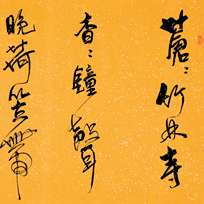 蒼〻竹林寺
杳〻鐘聲
晚荷笠帶